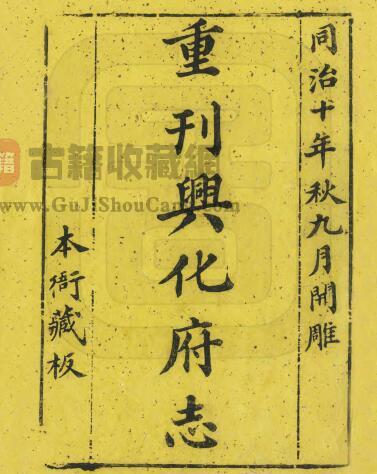 同治十年秋九月開雕
重刊興化府志
本衙藏板
古籍收藏網
www.GuJiShouCang.com